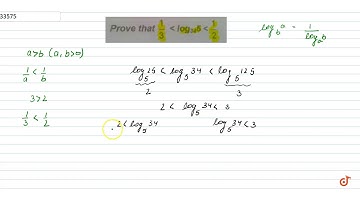 33575
Prove that 1/3 < log₃₄5 < 1/2
log_b a = 1/log_a b
a>b (a, b>0)
1/a < 1/b
3>2
1/3 < 1/2
log₅25 < log₅34 < log₅125
2 3
2 < log₅34 < 3
2 < log₅34 log₅34 < 3